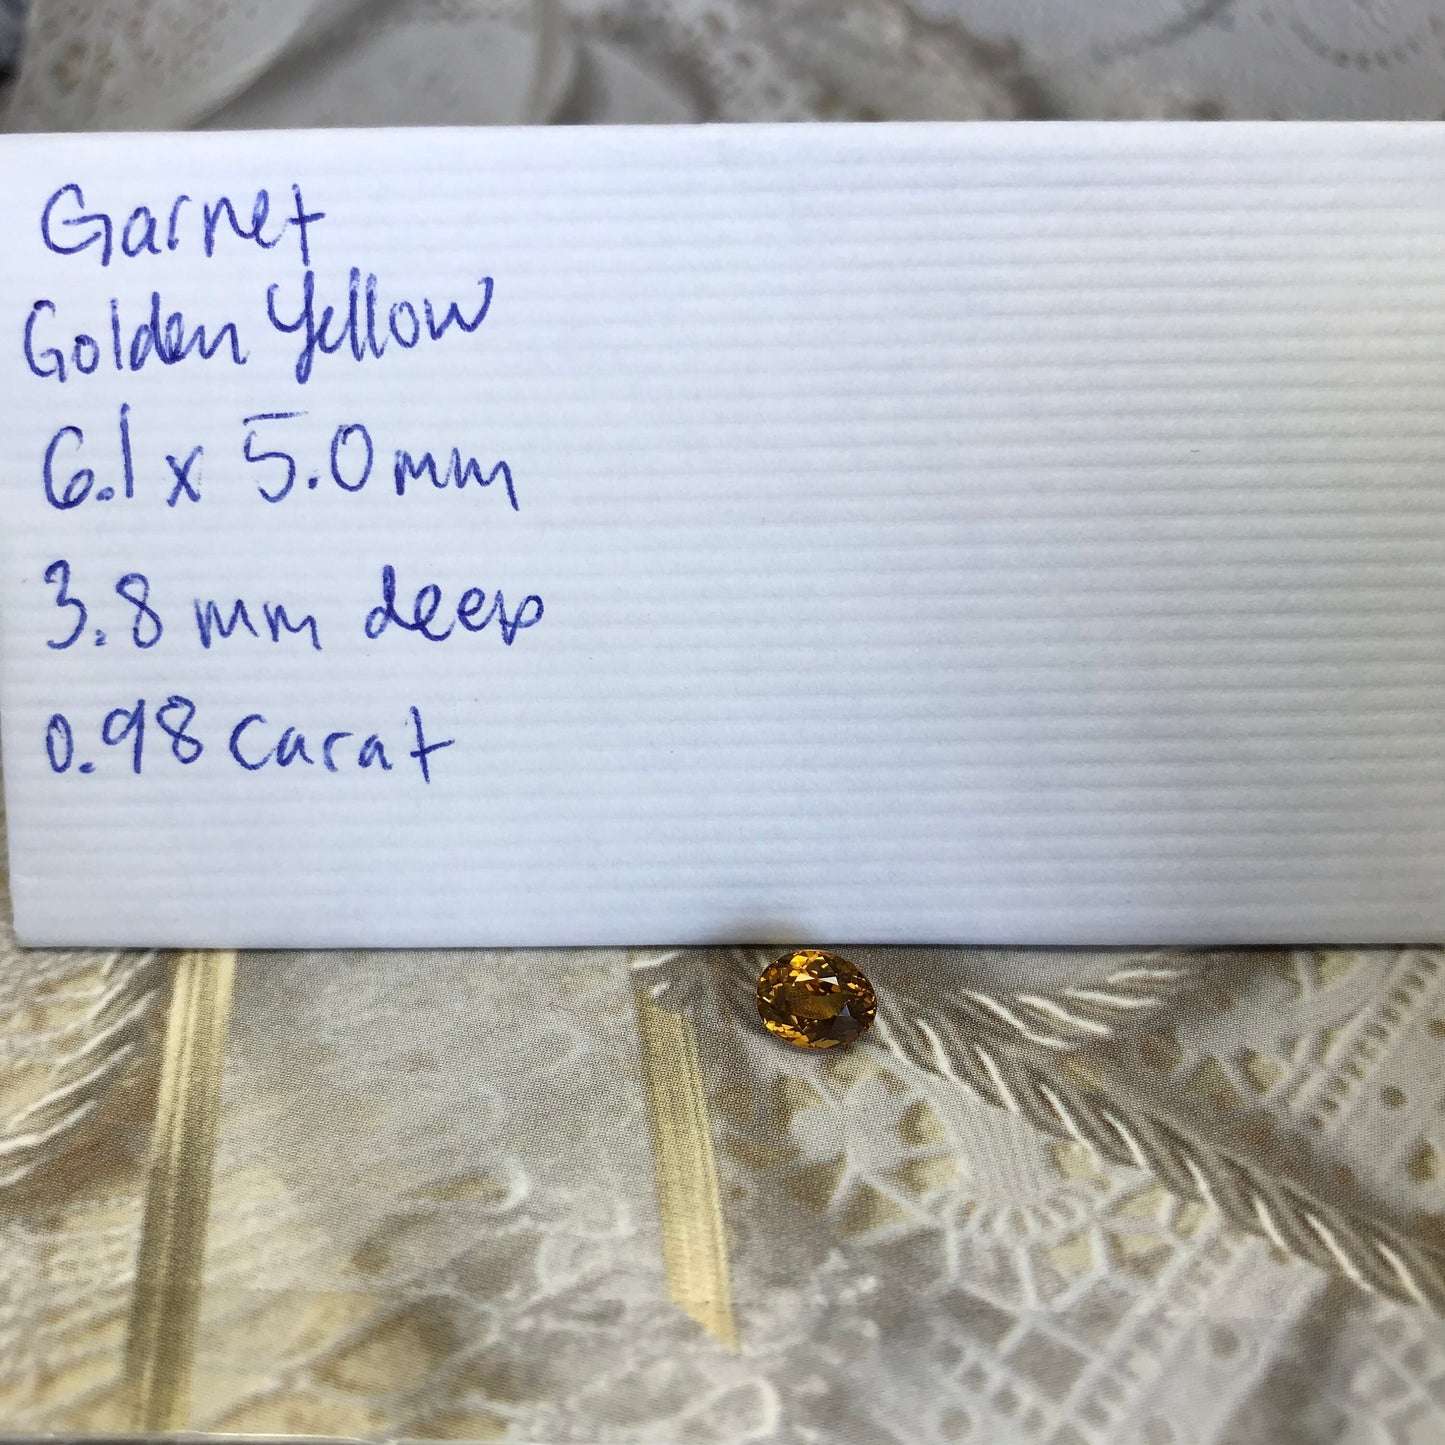 Garnet
Golden Yellow
6.1 x 5.0 mm
3.8 mm deep
0.98 carat